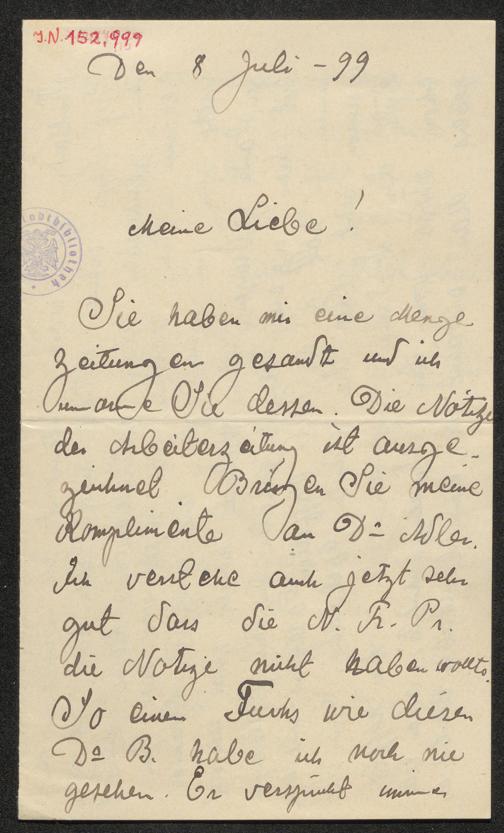 J.N. 152,999
Den 8 Juli - 99
Stadtbibliothek
Meine Liebe!
Sie haben mir eine Menge
Zeitungen gesandt und ich
umarme Sie dessen. Die Notize
der Arbeiterzeitung ist ausge-
zeichnet Bringen Sie meine
Komplimente an Dr Adler.
Ich verstehe auch jetzt sehr
gut dass die N. Fr. Pr.
die Notize nicht haben wollte.
So einen Fuchs wie diesen
Dr B. habe ich noch nie
gesehen. Er verspricht immer